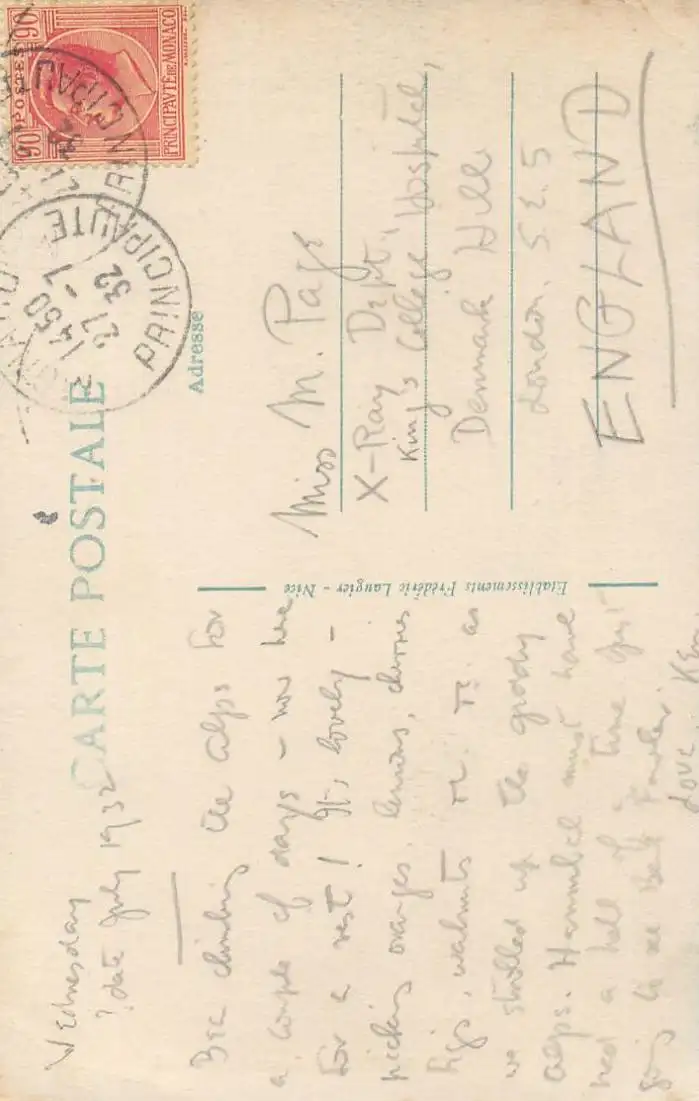 CARTE POSTALE
Wednesday
? date July 1932
Bee climbing the Alps for
a couple of days – now here
for a rest! It's lovely –
picking oranges, lemons, cherries
figs, walnuts etc. etc. as
we strolled up the groovy
Alps. Hannibal must have
had a hell of a time. Just
going to see
Love. Ken
Etablissements Frédéric Laugier - Nice
Adresse
Miss M. Page
X-Ray Dept.,
King's College Hospital,
Denmark Hill
London. S.E.5
ENGLAND
POSTES
90 90
PRINCIPAUTÉ DE MONACO
PRINCIPAUTE
1450
27-7
32
PRINCIPAU